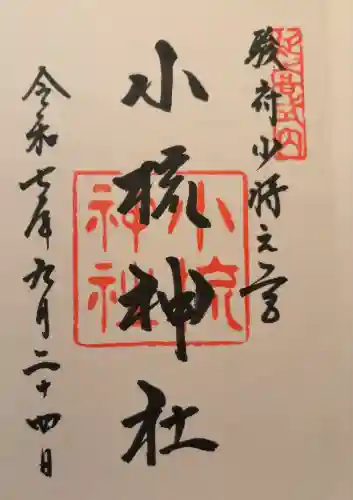 駿府少将之宮
小梳神社
令和七年九月二十四日
小梳
神社